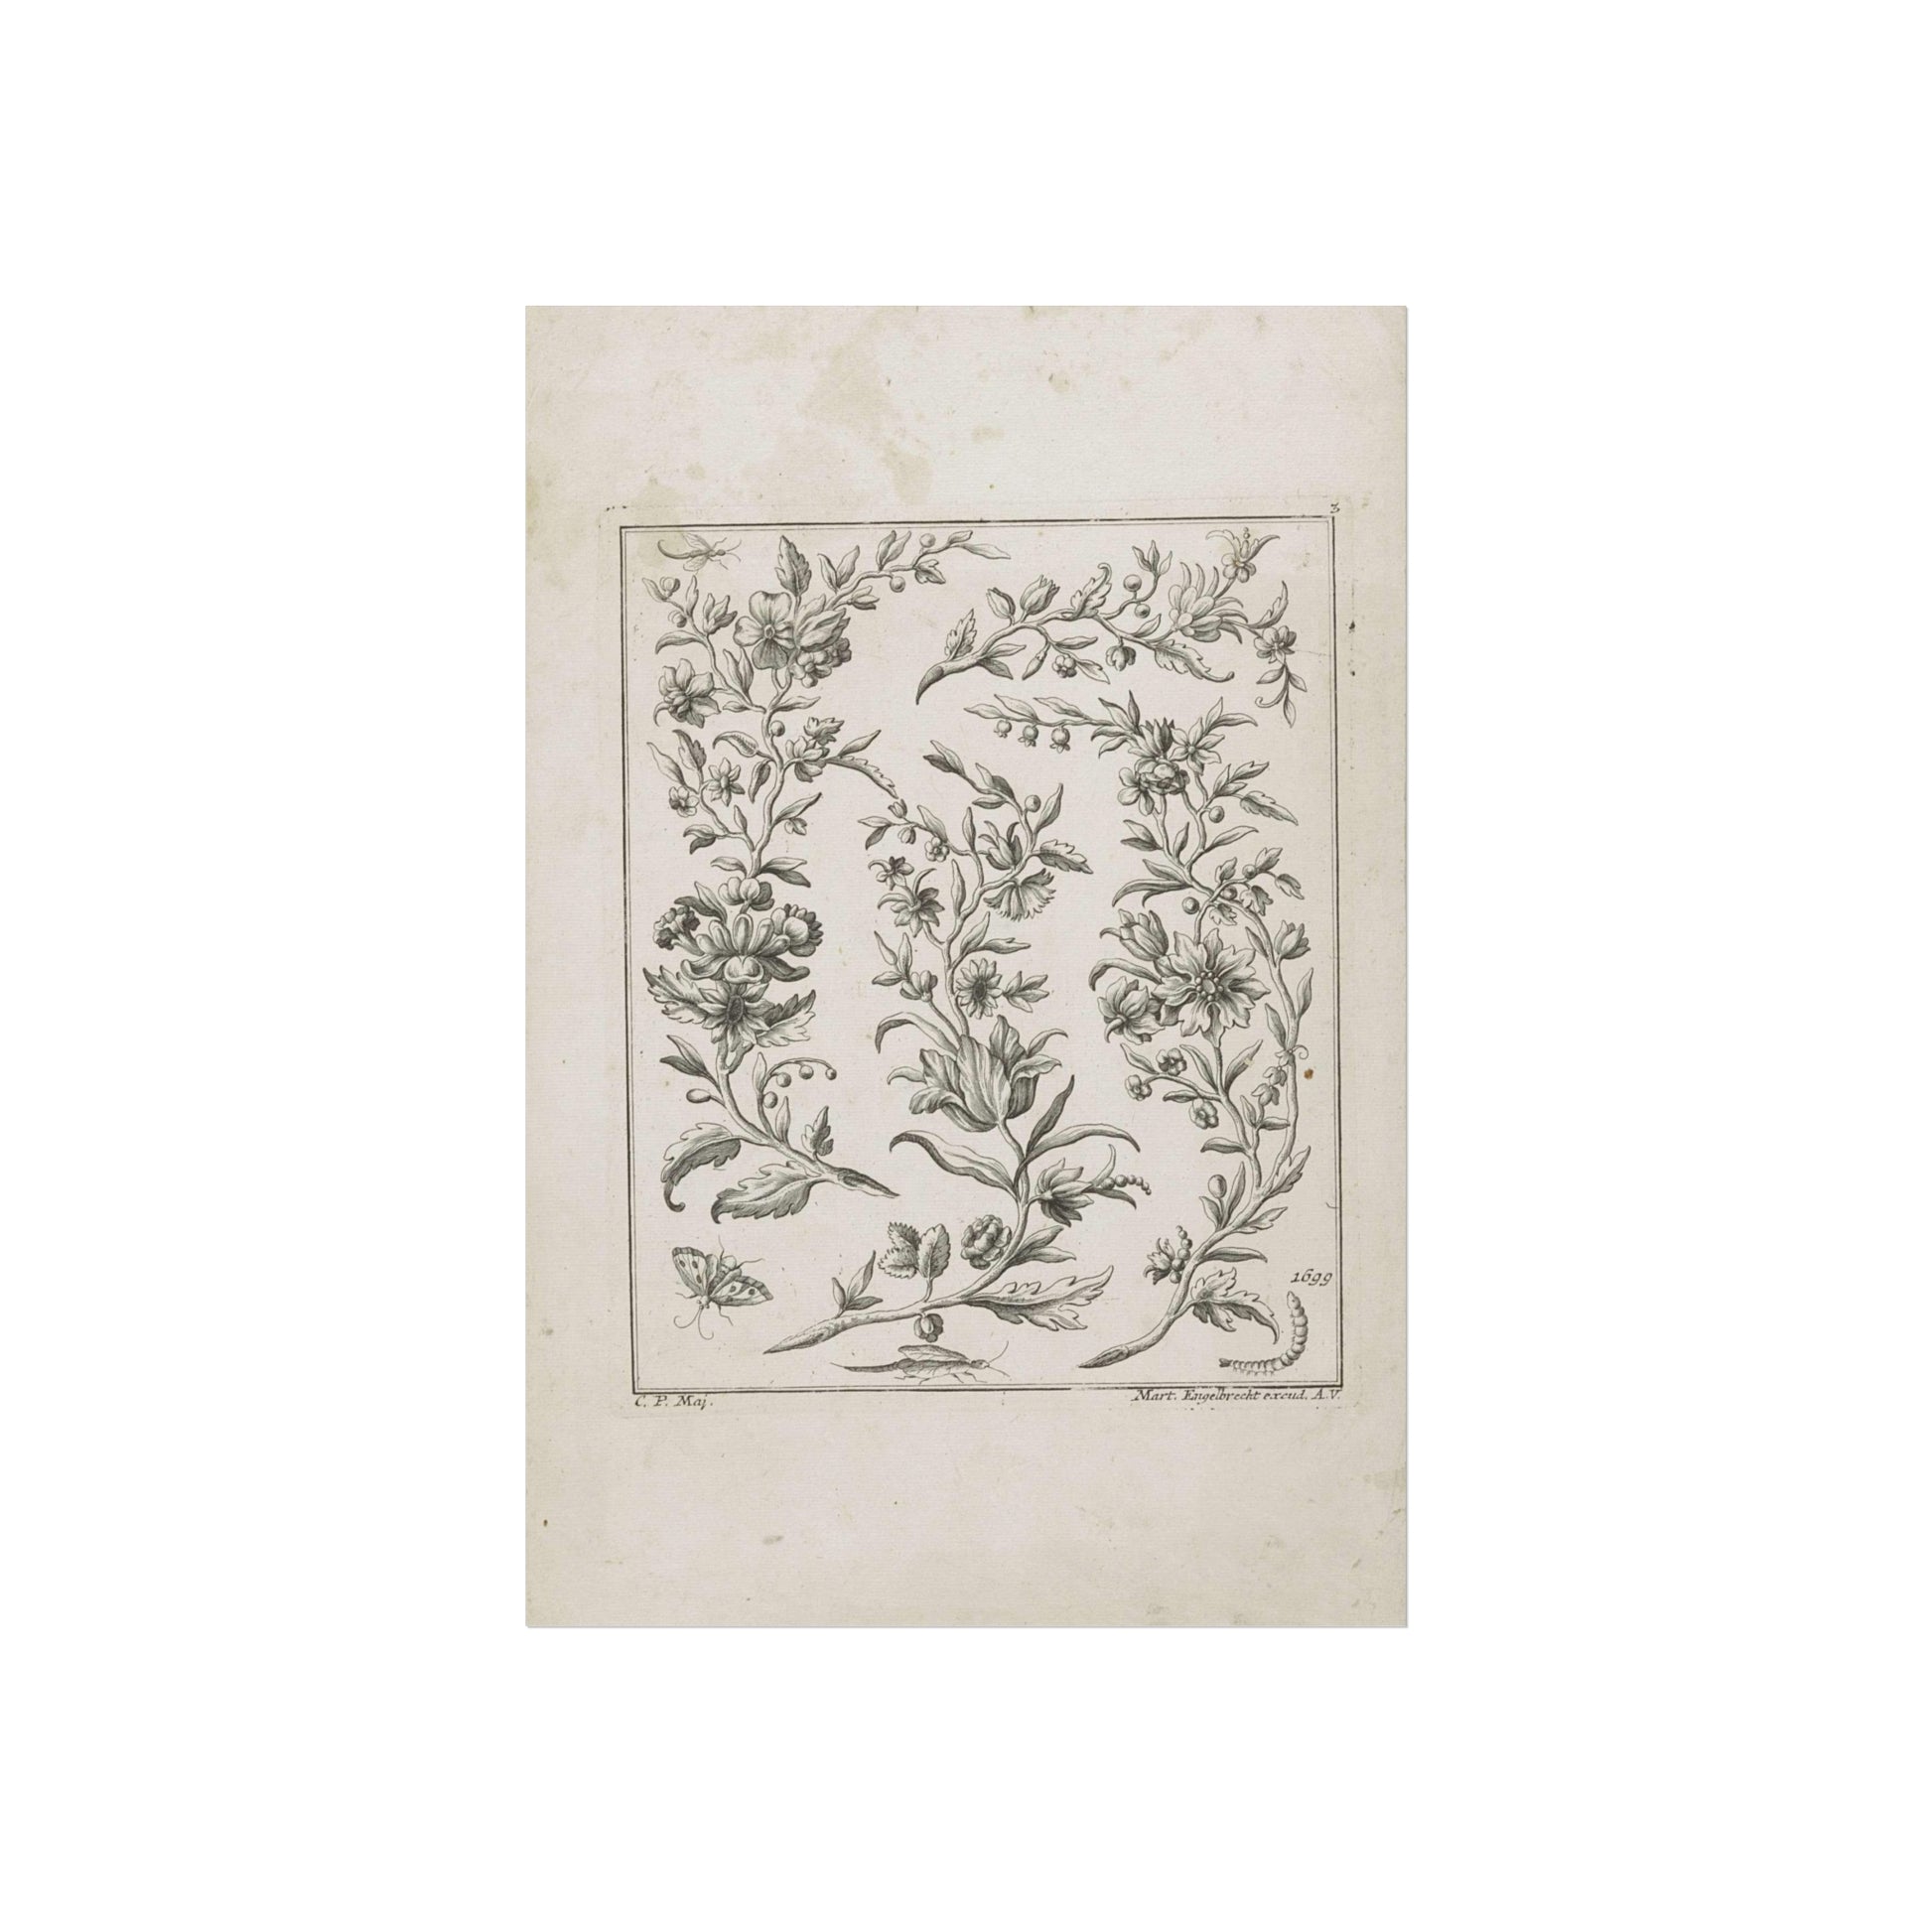 3
1699
C. P. Maj.
Mart. Engelbrecht excud. A.V.